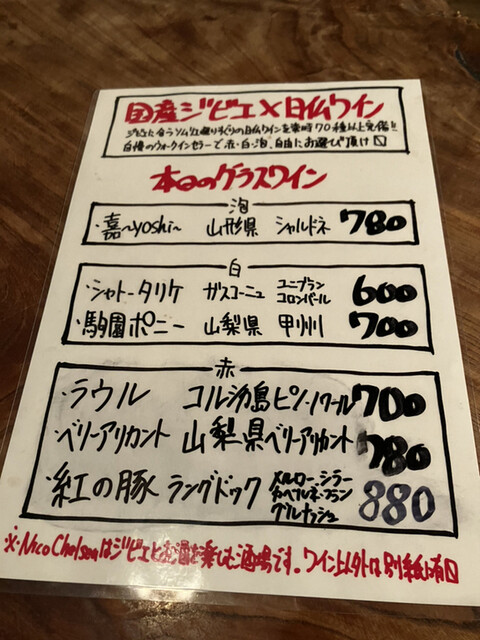 国産ジビエ×日仏ワイン
ジビエに合うソムリエ選りすぐりの日仏ワインを常時70種以上完備!!
自慢のウォークインセラーで赤・白・泡、自由にお選び頂け〼
本日のグラスワイン
泡
・嘉~yoshi~ 山形県 シャルドネ 780
白
・シャトータリケ ガスコーニュ ユニブラン コロンバール 600
・駒園ポニー 山梨県 甲州 700
赤
・ラウル コルシカ島 ピノ・ノワール 700
・ベリーアリカント 山梨県 ベリーアリカント 780
・紅の豚 ラングドック メルロー、シラー カベルネ・フラン グルナッシュ 880
※Nico Chelseaはジビエとお酒を楽しむ酒場です。ワイン以外は別紙に有〼